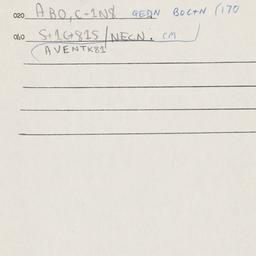 020 ABO, C-1N8 GEDN BOL+N (170
060 S+1G+815/NECN. CM
(AVENTK81